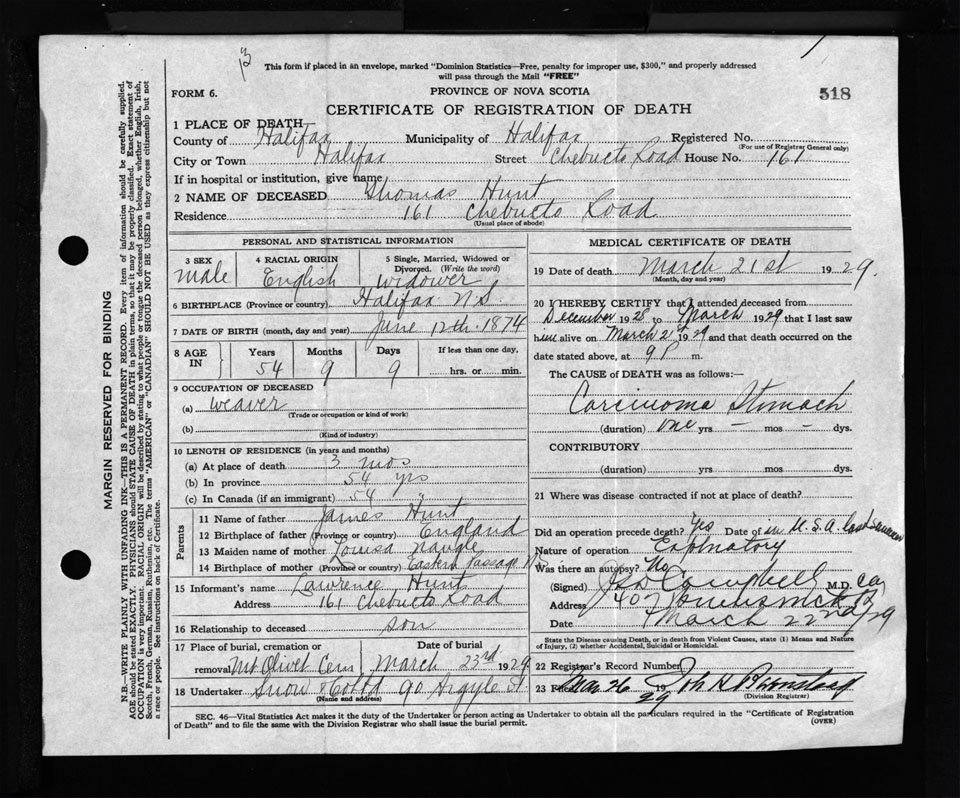 13
This form if placed in an envelope, marked "Dominion Statistics—Free, penalty for improper use, $300," and properly addressed
will pass through the Mail "FREE"
FORM 6.
PROVINCE OF NOVA SCOTIA
518
CERTIFICATE OF REGISTRATION OF DEATH
1 PLACE OF DEATH
County of Halifax Municipality of Halifax Registered No.
(For use of Registrar General only)
City or Town Halifax Street Chebucto Road House No. 161
If in hospital or institution, give name
2 NAME OF DECEASED Thomas Hunt
Residence 161 Chebucto Road
(Usual place of abode)
PERSONAL AND STATISTICAL INFORMATION
3 SEX
male
4 RACIAL ORIGIN
English
5 Single, Married, Widowed or
Divorced. (Write the word)
widower
6 BIRTHPLACE (Province or country) Halifax N.S.
7 DATE OF BIRTH (month, day and year) June 12th 1874
8 AGE IN
Years Months Days If less than one day,
54 9 9 hrs. or min.
9 OCCUPATION OF DECEASED
(a) weaver
(Trade or occupation or kind of work)
(b)
(Kind of industry)
10 LENGTH OF RESIDENCE (in years and months)
(a) At place of death 3 mos
(b) In province 54 yrs
(c) In Canada (if an immigrant) 54 "
Parents
11 Name of father James Hunt
12 Birthplace of father (Province or country) England
13 Maiden name of mother Louisa Naugle
14 Birthplace of mother (Province or country) Eastern Passage N.S.
15 Informant's name Lawrence Hunt
Address 161 Chebucto Road
16 Relationship to deceased son
17 Place of burial, cremation or
removal Mt Olivet Cem
Date of burial
March 23rd 1929
18 Undertaker Snow & Co Ltd 90 Argyle St
(Name and address)
MEDICAL CERTIFICATE OF DEATH
19 Date of death March 21st 1929.
(Month, day and year)
20 I HEREBY CERTIFY that I attended deceased from
December 1928 to March 1929 that I last saw
him alive on March 21st 1929 and that death occurred on the
date stated above, at 9 P m.
The CAUSE of DEATH was as follows:—
Carcinoma Stomach
(duration) one yrs — mos — dys.
CONTRIBUTORY
(duration) yrs. mos. dys.
21 Where was disease contracted if not at place of death?
Did an operation precede death? Yes Date of in U.S.A.
Nature of operation Exploratory
Was there an autopsy? No
(Signed) Campbell M.D.
Address 407
Date March 22nd/29
State the Disease causing Death, or in death from Violent Causes, state (1) Means and Nature
of Injury, (2) whether Accidental, Suicidal or Homicidal.
22 Registrar's Record Number
23 Filed Mar 26 1929 John H
(Division Registrar)
SEC. 46—Vital Statistics Act makes it the duty of the Undertaker or person acting as Undertaker to obtain all the particulars required in the "Certificate of Registration
of Death" and to file the same with the Division Registrar who shall issue the burial permit.
(OVER)
MARGIN RESERVED FOR BINDING
N.B.—WRITE PLAINLY WITH UNFADING INK—THIS IS A PERMANENT RECORD. Every item of information should be carefully supplied.
AGE should be stated EXACTLY. PHYSICIANS should STATE CAUSE OF DEATH in plain terms, so that it may be properly classified. Exact statement of
OCCUPATION is very important. RACIAL ORIGIN will be described by stating to what people or tongue the deceased person belonged, whether English, Irish,
Scotch, French, German, Russian, Ruthenian, etc. The terms "AMERICAN" or "CANADIAN" SHOULD NOT BE USED as they express citizenship but not
a race or people. See instructions on back of Certificate.